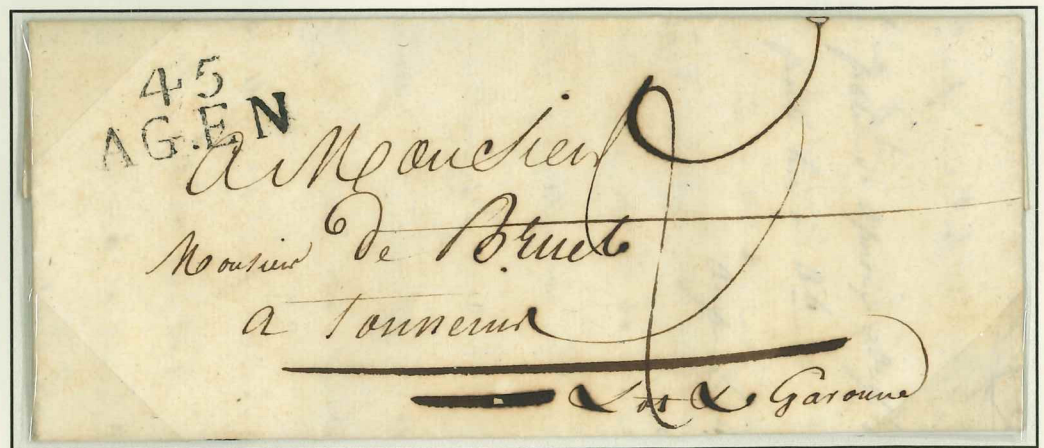 45
AGEN
A Monsieur
Monsieur de Bruet
a Tonneins
Lot & Garonne